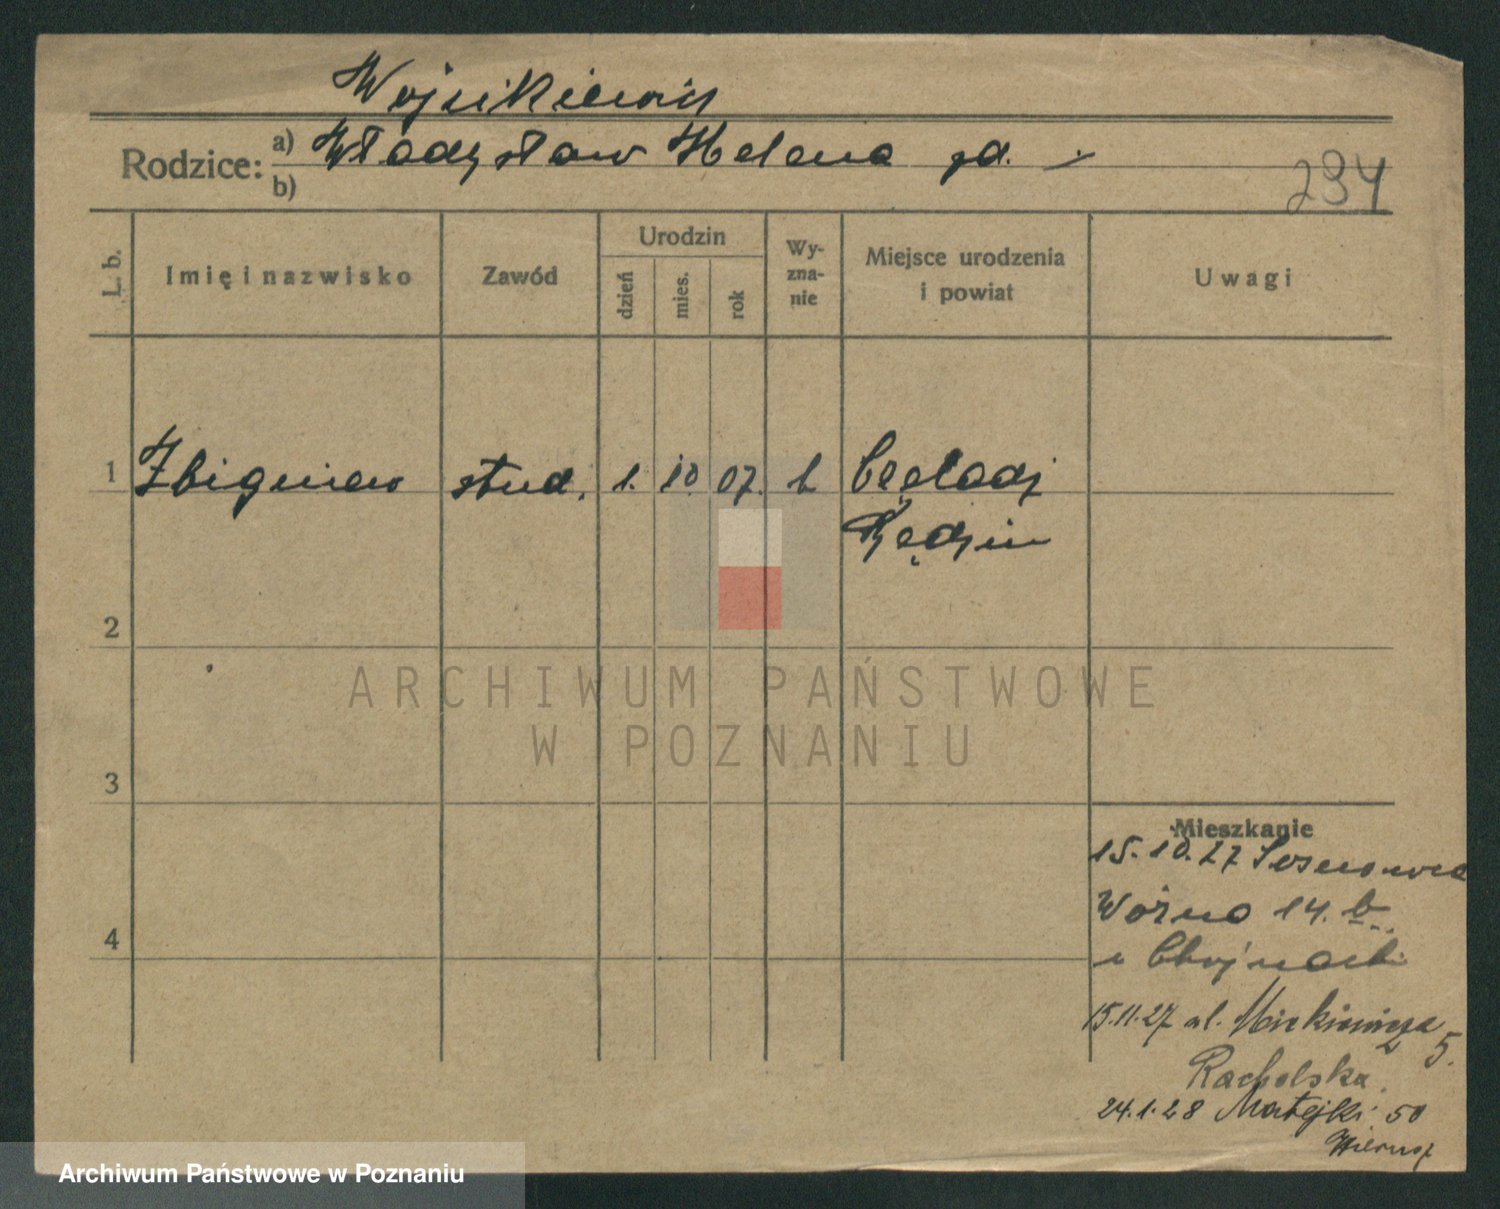 Wojcikiewicz
Rodzice: a) Władysław Helena zd. -
b)
234
L. b.
Imię i nazwisko
Zawód
Urodzin
dzień
mies.
rok
Wy-
zna-
nie
Miejsce urodzenia
i powiat
Uwagi
1 Zbigniew stud. 1. 10 07.
Będzin
2
3
4
Mieszkanie
15.10.27 Sosnowca
Woźna 14. b
u
15.11.27 ul. Mickiewicza
5.
Racholska
24.1.28 Matejki 50
ARCHIWUM PAŃSTWOWE
W POZNANIU
Archiwum Państwowe w Poznaniu